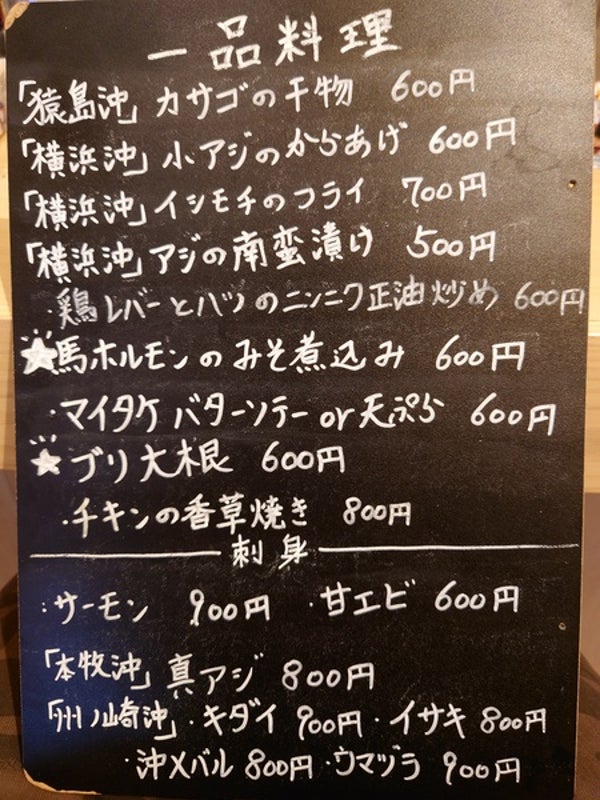 一品料理
「猿島沖」カサゴの干物 600円
「横浜沖」小アジのからあげ 600円
「横浜沖」イシモチのフライ 700円
「横浜沖」アジの南蛮漬け 500円
・鶏レバーとハツのニンニク正油炒め 600円
★馬ホルモンのみそ煮込み 600円
・マイタケバターソテーor天ぷら 600円
★ブリ大根 600円
・チキンの香草焼き 800円
刺身
・サーモン 900円 ・甘エビ 600円
「本牧沖」真アジ 800円
「州ノ崎沖」・キダイ 900円・イサキ 800円
・沖メバル 800円・ウマヅラ 900円